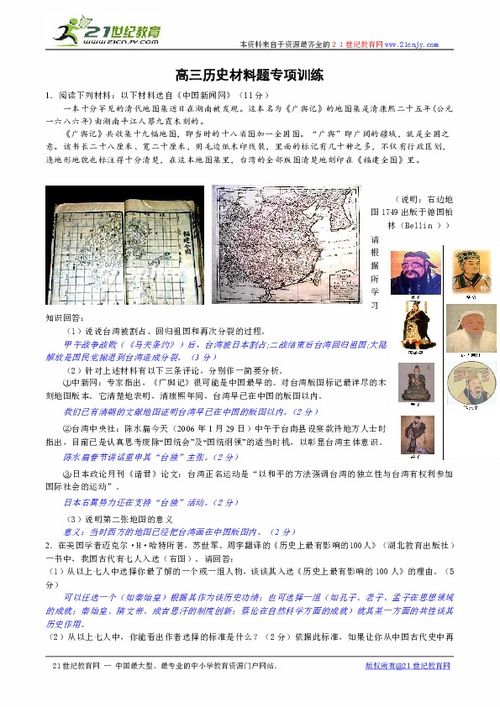 21世纪教育
WWW.21CNJY.COM
本资料来自于资源最齐全的21世纪教育网www.21cnjy.com
高三历史材料题专项训练
1．阅读下列材料：以下材料选自《中国新闻网》（11分）
一本十分罕见的清代地图集近日在湖南被发现。这本名为《广舆记》的地图集是清康熙二十五年(公元
一六八六年)由湖南平江人蔡九霞木刻的。
《广舆记》共收集十九幅地图，即当时的十八省图加一全国图。“广舆”即广阔的疆域，就是全国之
意。该书长二十八厘米、宽二十厘米，用毛边纸木印线装，里面的标记有几十种之多，不仅有行政区划，
连地形地貌也标注得十分清楚，在这本地图集里，台湾的全部版图清楚地刻印在《福建全图》里。
（说明：右边地
图1749出版于德国柏
林（Bellin））
请
根
据
所
学
习
知识回答：
（1）说说台湾被割占、回归祖国和再次分裂的过程。
甲午战争战败(《马关条约》)后，台湾被日本割占;二战结束后台湾回归祖国;大陆
解放是国民党撤退到台湾造成分裂。(3分)
（2）针对上述材料有以下三条评论，分别作一简要分析。
①中新网：专家指出，《广舆记》很可能是中国最早的、对台湾版图标记最详尽的木
刻地图版本，它清楚地表明，清康熙年间，台湾早已在中国的版图以内。
我们已有清朝的文献地图证明台湾早已在中国的版图以内。(2分)
②台湾中央社：陈水扁今天（2006年1月29日）中午于台南县设宴款待地方人士时
指出，目前已是认真思考废除“国统会”及“国统纲领”的适当时机，以彰显台湾主体意识。
陈水扁春节讲话重申其“台独”主张。(2分)
③日本政论月刊《诸君》论文：台湾正名运动是“以和平的方法强调台湾的独立性与台湾有权利参加
国际社会的运动”。
日本右翼势力还在支持“台独”活动。(2分)
（3）说明第二张地图的意义
意义：当时西方的地图已经把台湾画在中国版图内。(2分)
2．在美国学者迈克尔·H·哈特所著，苏世军、周宇翻译的《历史上最有影响的100人》（湖北教育出版社）
一书中，我国古代有七人入选（右图）。请回答：
（1）从以上七人中选择你最了解的一个或一组人物，谈谈其入选《历史上最有影响的100人》的理由。（5
分）
可以任选一个(如秦始皇)根据其作为谈历史功绩；也可选择一组(如孔子、老子、孟子在思想领域
的成就；秦始皇、隋文帝、成吉思汗的制度创新；蔡伦在自然科学方面的成就)就其某一方面的共性谈其
历史作用。
（2）从以上七人中，你能看出作者选择的标准是什么？（2分）依据此标准，如果让你从中国古代史中再
21世纪教育网 -- 中国最大型、最专业的中小学教育资源门户网站。
版权所有@21世纪教育网